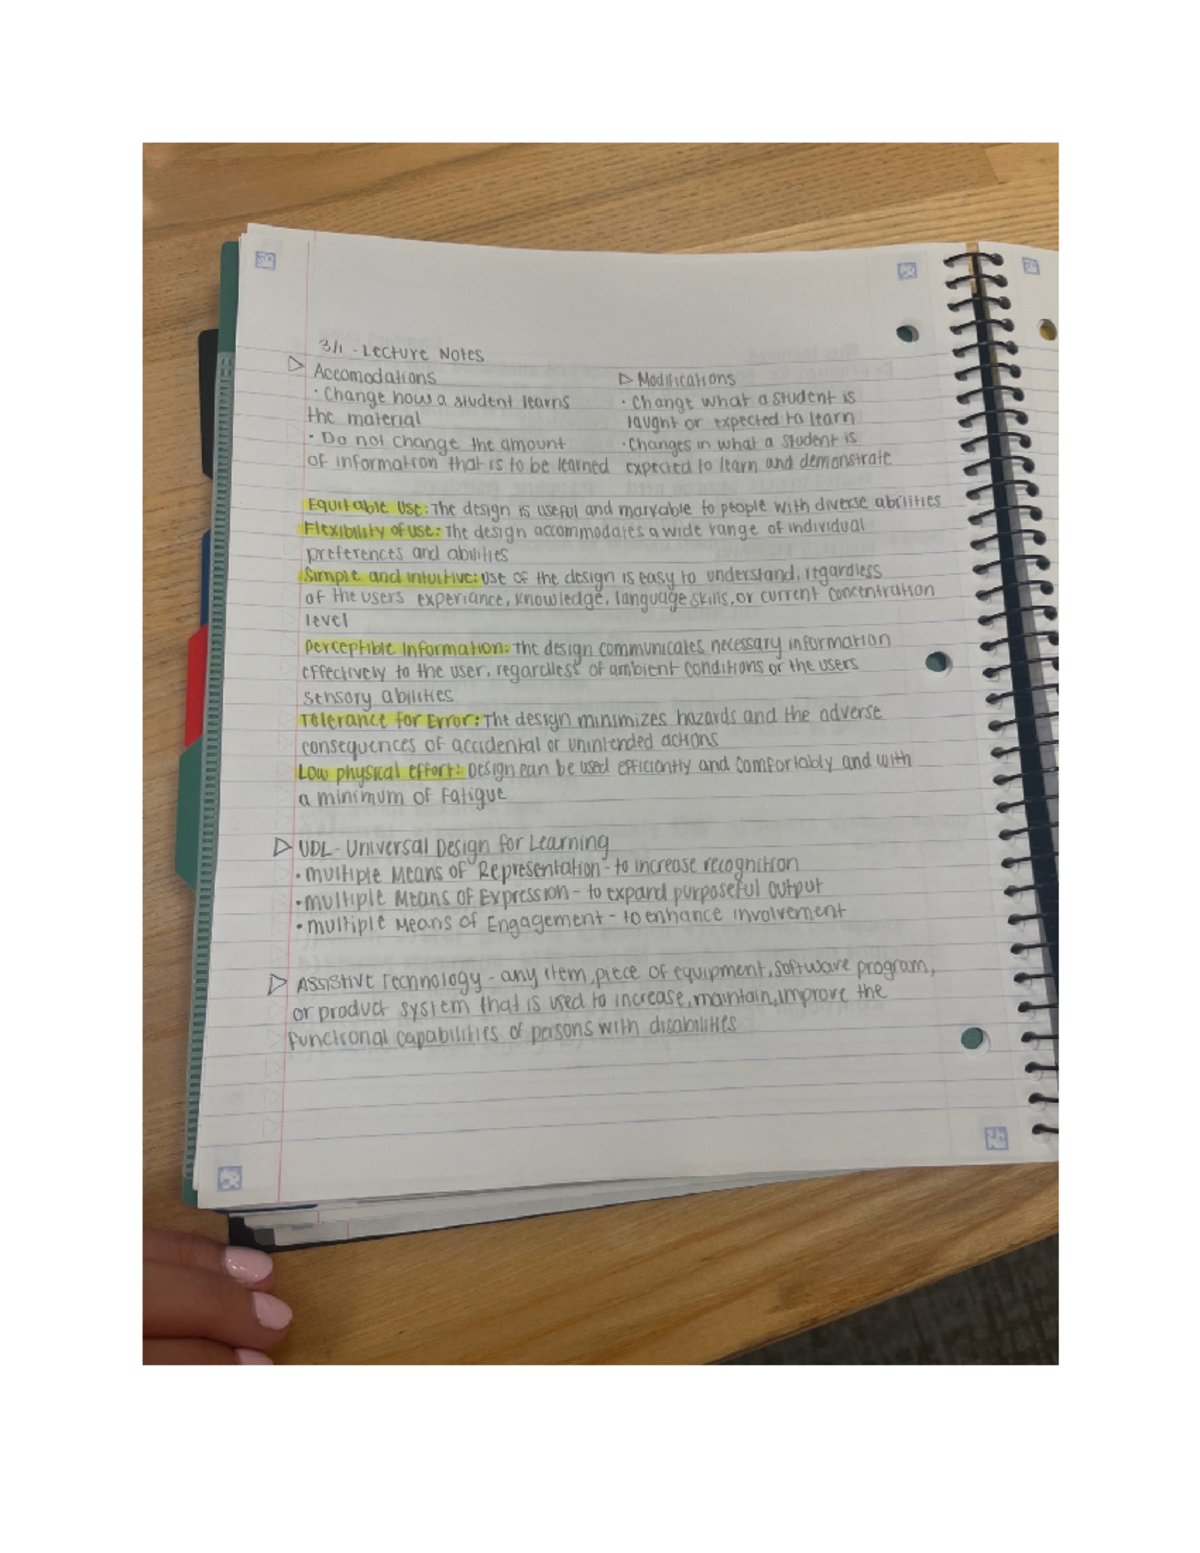 3/1 - Lecture Notes
▷ Accomodations
· Change how a student learns
the material
· Do not change the amount
of information that is to be learned
▷ Modifications
· Change what a student is
taught or expected to learn
· Changes in what a student is
expected to learn and demonstrate
Equitable Use: The design is useful and marvable to people with diverse abilities
Flexibility of use: The design accommodates a wide range of individual
preferences and abilities
Simple and intuitive: Use of the design is easy to understand, regardless
of the users experiance, knowledge, language skills, or current concentration
level
Perceptible Information: The design communicates necessary information
effectively to the user, regardless of ambient conditions or the users
sensory abilities
Tolerance for Error: The design minimizes hazards and the adverse
consequences of accidental or unintended actions
Low physical effort: Design can be used efficiently and comfortably and with
a minimum of fatigue
▷ UDL - Universal Design for Learning
· multiple Means of Representation - to increase recognition
· multiple Means of Expression - to expand purposeful output
· multiple Means of Engagement - to enhance involvement
▷ Assistive Technology - any item, piece of equipment, software program,
or product system that is used to increase, maintain, improve the
functional capabilities of persons with disabilities